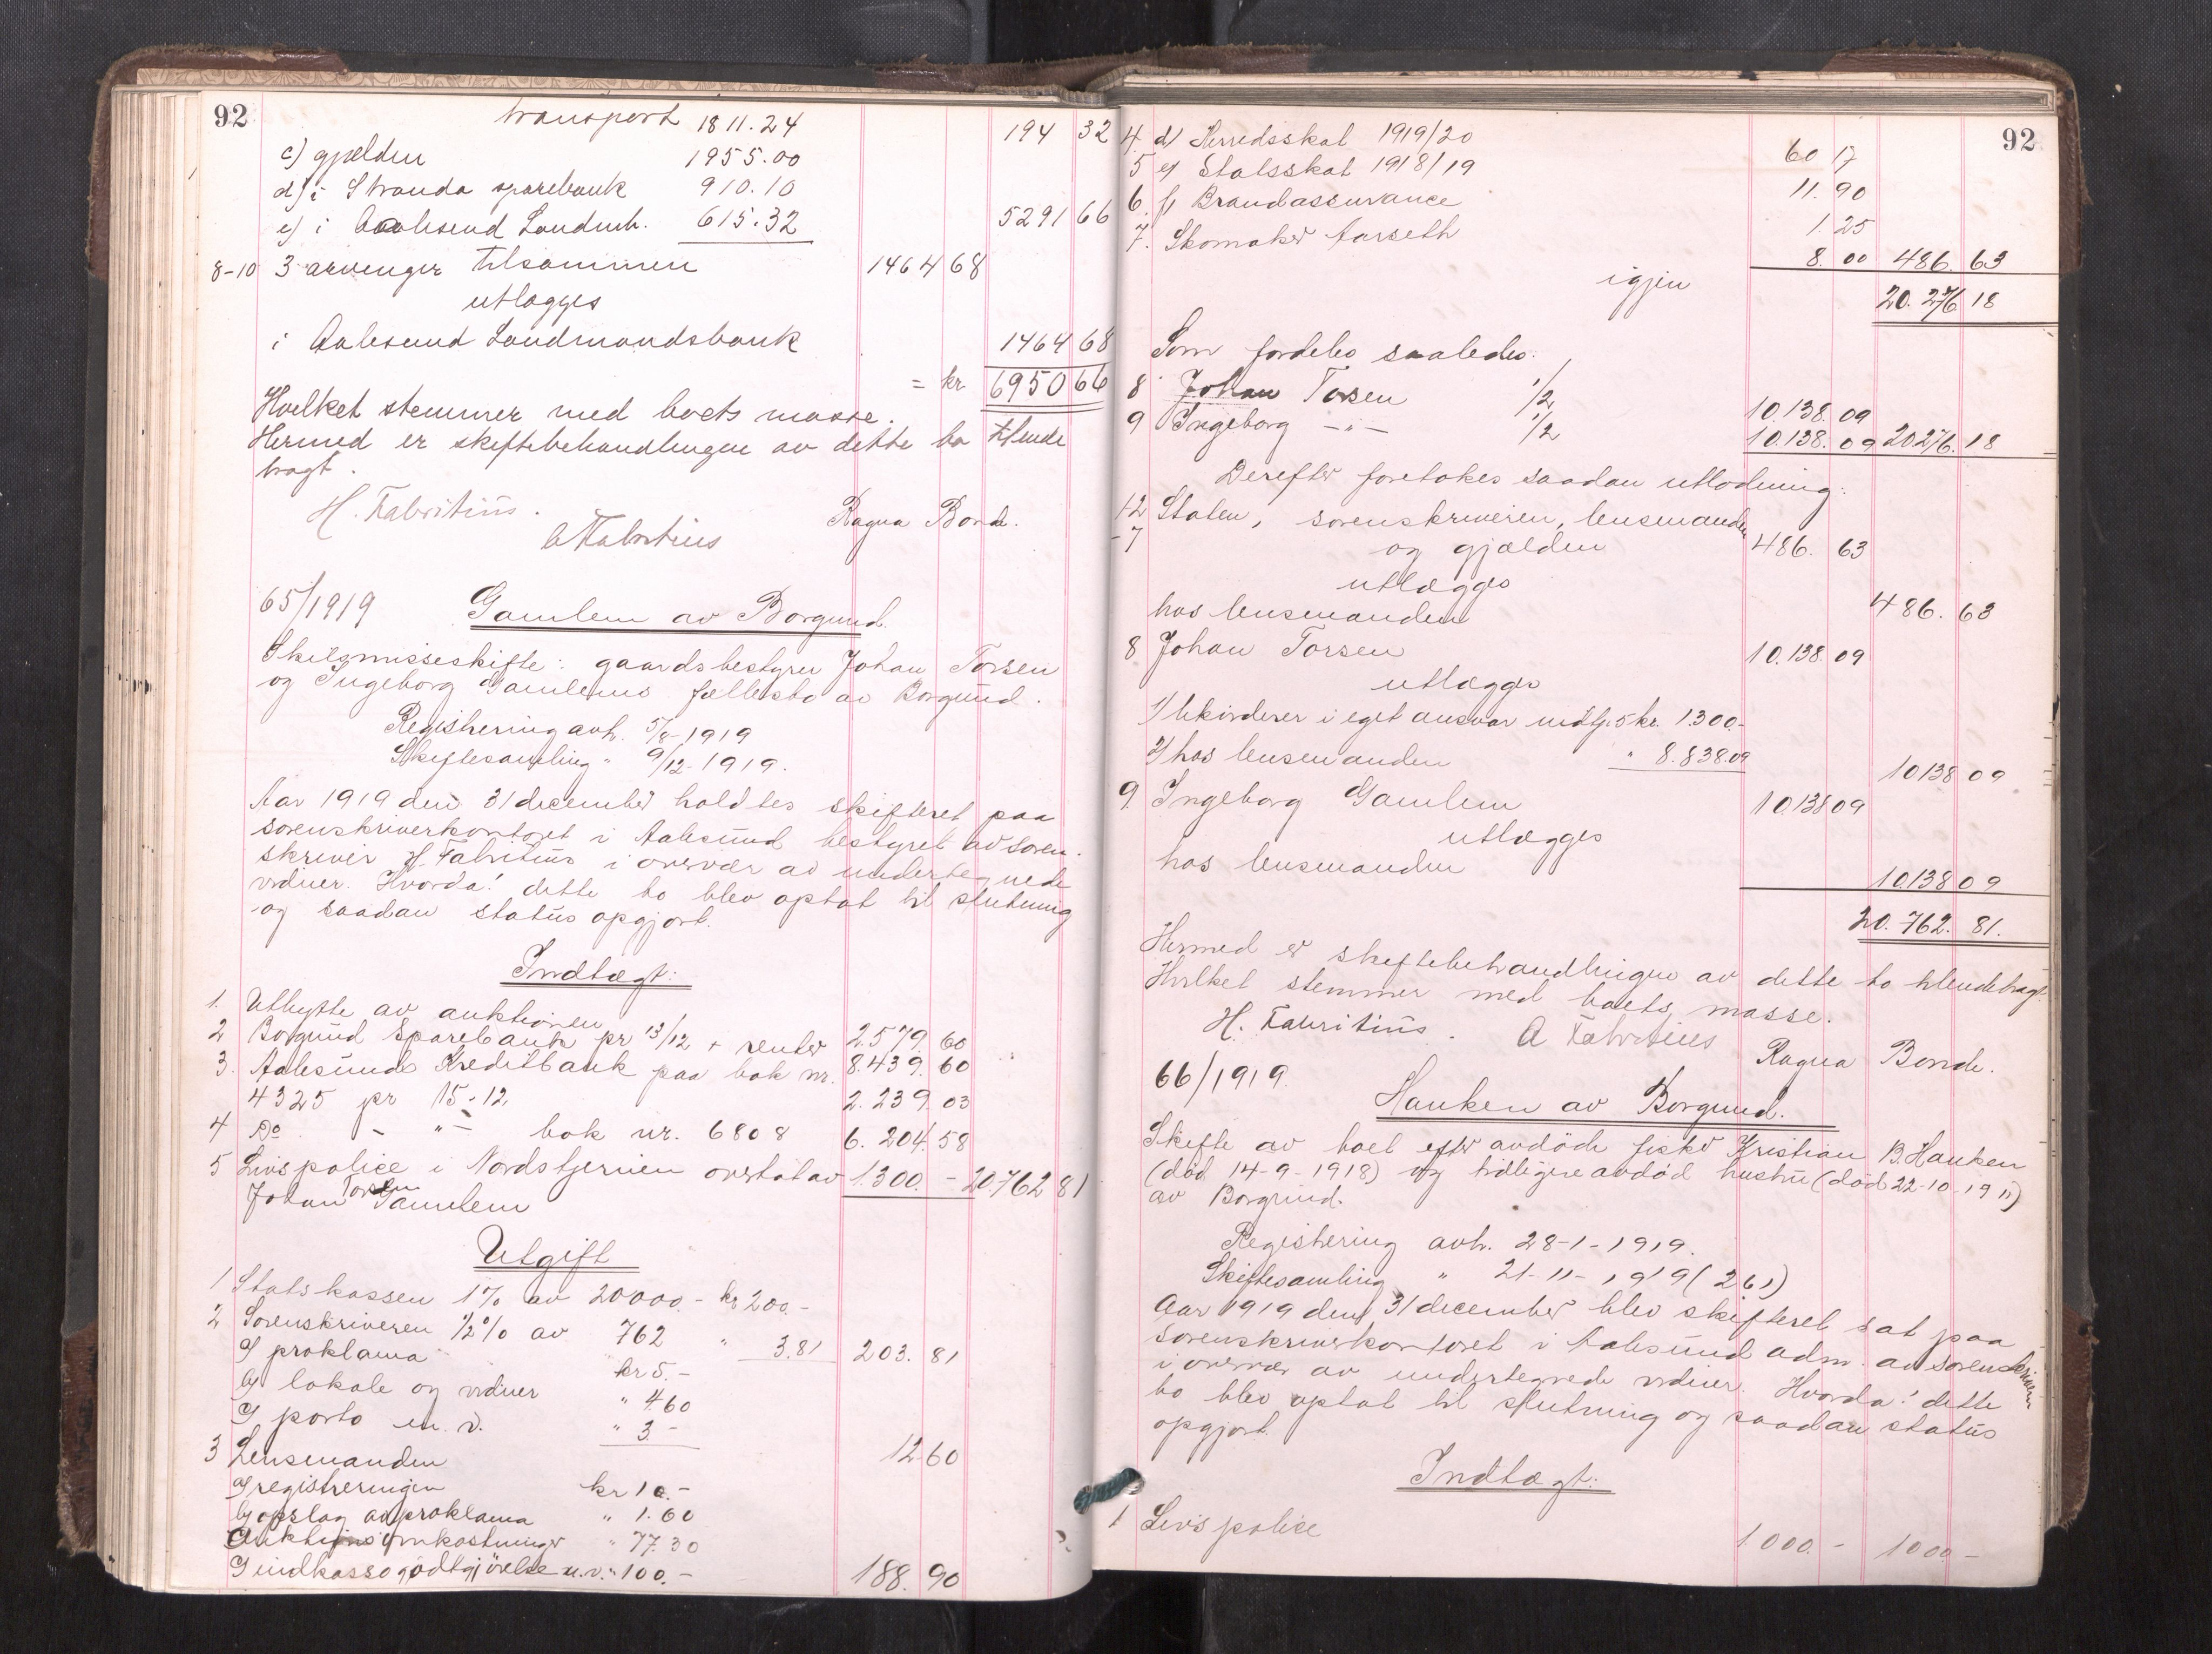 92
transport 1811.24 194 32
c) gjælden 1955.00
d) i Stranda sparebank 910.10
e) i Aalesund Landmb. 615.32 5291 66
8-10 3 arvinger tilsammen 1464 68
utlægges
i Aalesund Landmandsbank 1464 68
= kr 6950 66
Hvilket stemmer med boets masse.
Hermed er skiftebehandlingen av dette bo tilende
bragt.
H. Fabritius.
A Fabritius Ragna Bonde.
65/1919 Gamlem av Borgund.
Skilsmisseskifte: gaardsbestyrer Johan Torsen
og Ingeborg Gamlems fællesbo av Borgund.
Registrering avh. 5/8-1919
Skiftesamling " 9/12-1919.
Aar 1919 den 31 december holdtes skifteret paa
sorenskriverkontoret i Aalesund bestyret av soren-
skriver H. Fabritius i overvær av undertegnede
vidner. Hvorda! dette bo blev optat til slutning
og saadan status opgjort.
Indtægt:
1. Utbytte av auktionen 2.579. 60
2 Borgund Sparebank pr 13/12 + renter 8.439. 60
3. Aalesunds Kreditbank paa bok nr.
4325 pr 15-12. 2.239. 03
4 Do - "- bok nr. 6808 6.204. 58
5 Livspolice i Nordstjernen overtat av 1.300. - 20.762 81
Johan Torsen Gamlem
Utgift
1 Statskassen 1% av 20000.- kr 200.-
2 Sorenskriveren 1/2% av 762 " 3.81 203. 81
a) proklama kr 5.-
b) lokale og vidner " 4.60
c) porto m. v. " 3.- 12 60
3 Lensmanden
a) registreringen kr 10.-
b) opslag av proklama " 1.60
Auktionsomkostninger " 77.30
d) indkassogodtgjörelse m.v. " 100.- 188. 90
92
4. d) Herredsskat 1919/20 60 17
5 e) Statsskat 1918/19 11. 90
6. f) Brandassurance 1. 25
7. Skomaker Aarseth 8. 00 486. 63
igjen 20.276 18
Som fordeles saaledes:
8 Johan Torsen 1/2 10.138. 09
9 Ingeborg -"- 1/2 10.138. 09 20276. 18
Derefter foretakes saadan utlodning:
1-2 Staten, sorenskriveren, lensmanden
-7 og gjælden 486. 63
utlægges
hos lensmanden 486. 63
8 Johan Torsen 10.138. 09
utlægges
1) livspolicen i eget ansvar indtg. 5 kr. 1.300.-
2) hos lensmanden " 8.838.09 10138 09
9. Ingeborg Gamlem 10.138 09
utlægges
hos lensmanden 10138 09
20.762. 81.
Hermed er skiftebehandlingen av dette bo tilendebragt.
Hvilket stemmer med boets masse.
H. Fabritius. A Fabritius Ragna Bonde.
66/1919. Hanken av Borgund.
Skifte av boet efter avdöde fisker Kristian B. Hanken
(död 14-9-1918) og tidligere avdöd hustru (död 22-10-1911)
av Borgund.
Registrering avh. 28-1-1919.
Skiftesamling " 21-11-1919 (261)
Aar 1919 den 31 december blev skifteret sat paa
sorenskriverkontoret i Aalesund adm. av sorenskriveren
i overvær av undertegnede vidner. Hvorda! dette
bo blev optat til slutning og saadan status
opgjort.
Indtægt:
1 Livspolice 1.000.- 1000.-